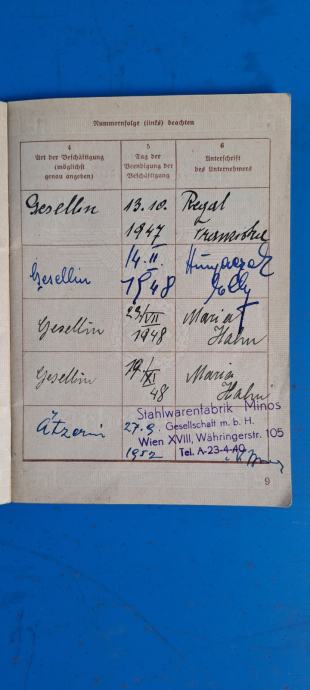 Nummernfolge (links) beachten
4
Art der Beschäftigung
(möglichst
genau angeben)
5
Tag der
Beendigung der
Beschäftigung
6
Unterschrift
des Unternehmers
Gesellin
13. 10.
1947
Gesellin
14. II.
1948
Gesellin
VII
1948
Maria
Hahn
Gesellin
19.
XI
48
Maria
Hahn
Ätzerin
27. 9.
1952
Stahlwarenfabrik Minos
Gesellschaft m. b. H.
Wien XVIII, Währingerstr. 105
Tel. A-23-4-40
9